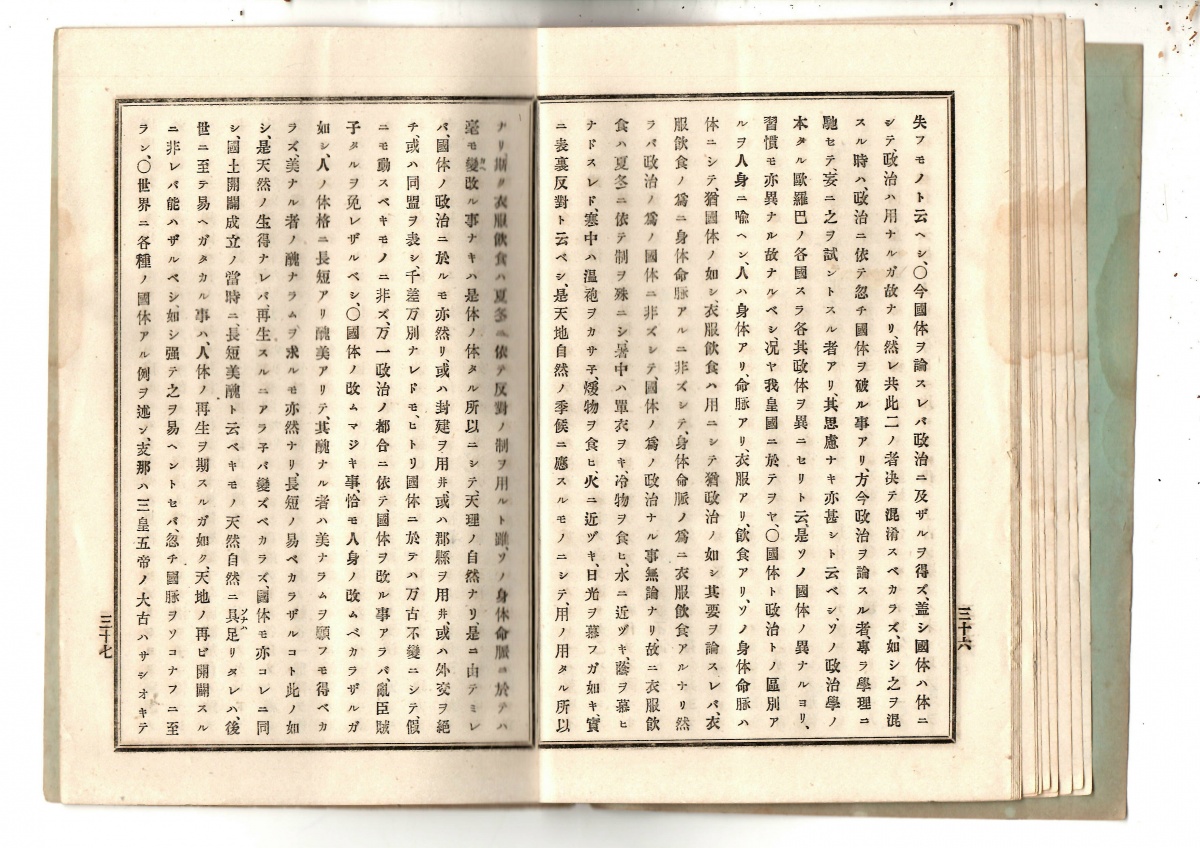 失フモノト云ヘシ、〇今國体ヲ論スレバ政治ニ及ザルヲ得ズ、盖シ國体ハ休ニ
シテ、政治ハ用ナルガ故ナリ、然レ共此二ノ者决テ混淆スベカラズ、如シ之ヲ混
スル時ハ、政治ニ依テ忽チ國体ヲ破ル事アリ、方今政治ヲ論スル者、專ラ學理ニ
馳セテ妄ニ之ヲ試ントスル者アリ其思慮ナキ亦甚シト云ベシ、ソノ政治學ノ
本タル歐羅巴ノ各國スラ各其政体ヲ異ニセリト云、是ソノ國体ノ異ナルヨリ、
習慣モ亦異ナル故ナルベシ、况ヤ我皇國ニ於テヲヤ、〇國体ト政治トノ區別ア
ルヲ人身ニ喩ヘン、人ハ身体アリ、命脈アリ、衣服アリ、飲食アリ、ソノ身体命脈ハ
体ニシテ、猶國体ノ如シ、衣服飲食ハ用ニシテ猶政治ノ如シ其要ヲ論スレバ、衣
服飲食ノ爲ニ身休命脈アルニ非ズシテ、身体命脈ノ爲ニ衣服飲食アルナリ然
ラバ政治ノ爲ノ國体ニ非ズシテ國体ノ爲ノ政治ナル事無論ナリ、故ニ衣服飲
食ハ夏冬ニ依テ制ヲ殊ニシ、暑中ハ單衣ヲキ、冷物ヲ食ヒ、水ニ近ヅキ、蔭ヲ慕ヒ
ナドスレド、寒中ハ温袍ヲカサ子、煖物ヲ食ヒ、火ニ近ヅキ、日光ヲ慕フガ如キ實
ニ表裏反對ト云ベシ、是天地自然ノ季候ニ應スルモノニシテ、用ノ用タル所以
三十六
ナリ斯ク衣服飲食ハ夏冬ニ依テ反對ノ制ヲ用ルト雖、ソノ身休命脈ニ於テハ
毫モ變改ル事ナキハ是休ノ体タル所以ニシテ、天理ノ自然ナリ、是ニ由テミレ
バ、國体ノ政治ニ於ルモ亦然リ、或ハ封建ヲ用井或ハ郡縣ヲ用井、或ハ外交ヲ絶
チ、或ハ同盟ヲ表シ千差万別ナレドモ、ヒトリ國体ニ於テハ万古不變ニシテ假
ニモ動スベキモノニ非ズ、万一政治ノ都合ニ依テ、國体ヲ改ル事アラバ、亂臣賊
子タルヲ免レザルベシ、〇國体ノ改ムマジキ事、恰モ人身ノ改ムベカラザルガ
如シ、人ノ休格ニ長短アリ醜美アリテ、其醜ナル者ハ美ナラムヲ願フモ得ベカ
ラズ、美ナル者ノ醜ナラムヲ求ルモ亦然ナリ、長短ノ易ベカラザルコト此ノ如
シ、是天然ノ生得ナレバ、再生スルニアラ子バ變ズベカラズ、國休モ亦コレニ同
シ、國土開闢成立ノ當時ニ長短美醜ト云ベキモノ天然自然ニ具足リタレハ、後
世ニ至テ易ヘガタカル事ハ、人休ノ再生ヲ期スルガ如ク、天地ノ再ビ開闢スル
ニ非レバ能ハザルベシ、如シ强テ之ヲ易ヘントセバ、忽チ國脈ヲソコナフニ至
ラン、〇世界ニ各種ノ國休アル例ヲ述シ、支那ハ三皇五帝ノ大古ハサシオキテ
三十七